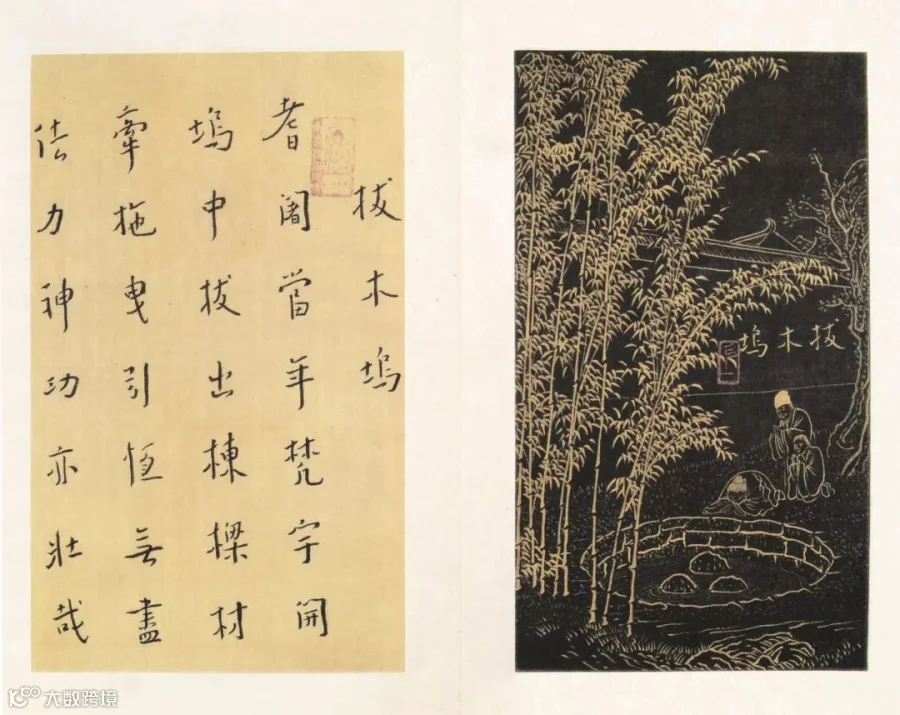 拔木塢
拔木塢
耆闍當年梵宇開
塢中拔出棟樑材
牽拖曳引恆無盡
法力神功亦壯哉
大数跨境